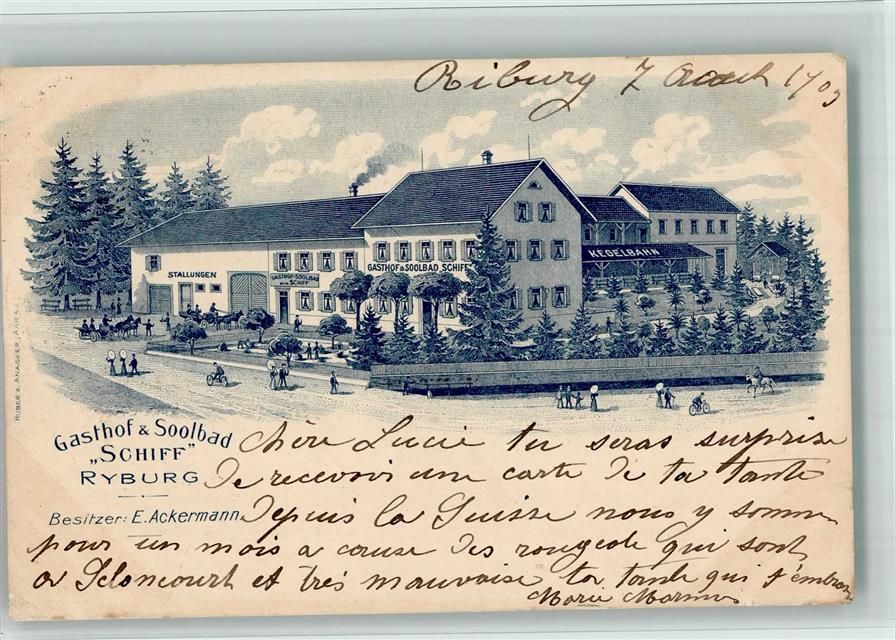 Riburg 7 Aout 1903
STALLUNGEN
GASTHOF & SOOLBAD
ZUM SCHIFF
GASTHOF & SOOLBAD SCHIFF
KEGELBAHN
HUBER & ANACKER, AARAU
Gasthof & Soolbad
„SCHIFF"
RYBURG
Besitzer: E. Ackermann
chère Lucie tu seras surprise
de recevoir une carte de ta tante
depuis la Suisse nous y somme
pour un mois a cause des rougeole qui sont
a Seloncourt et très mauvaise ta tante qui t'embras
Marie